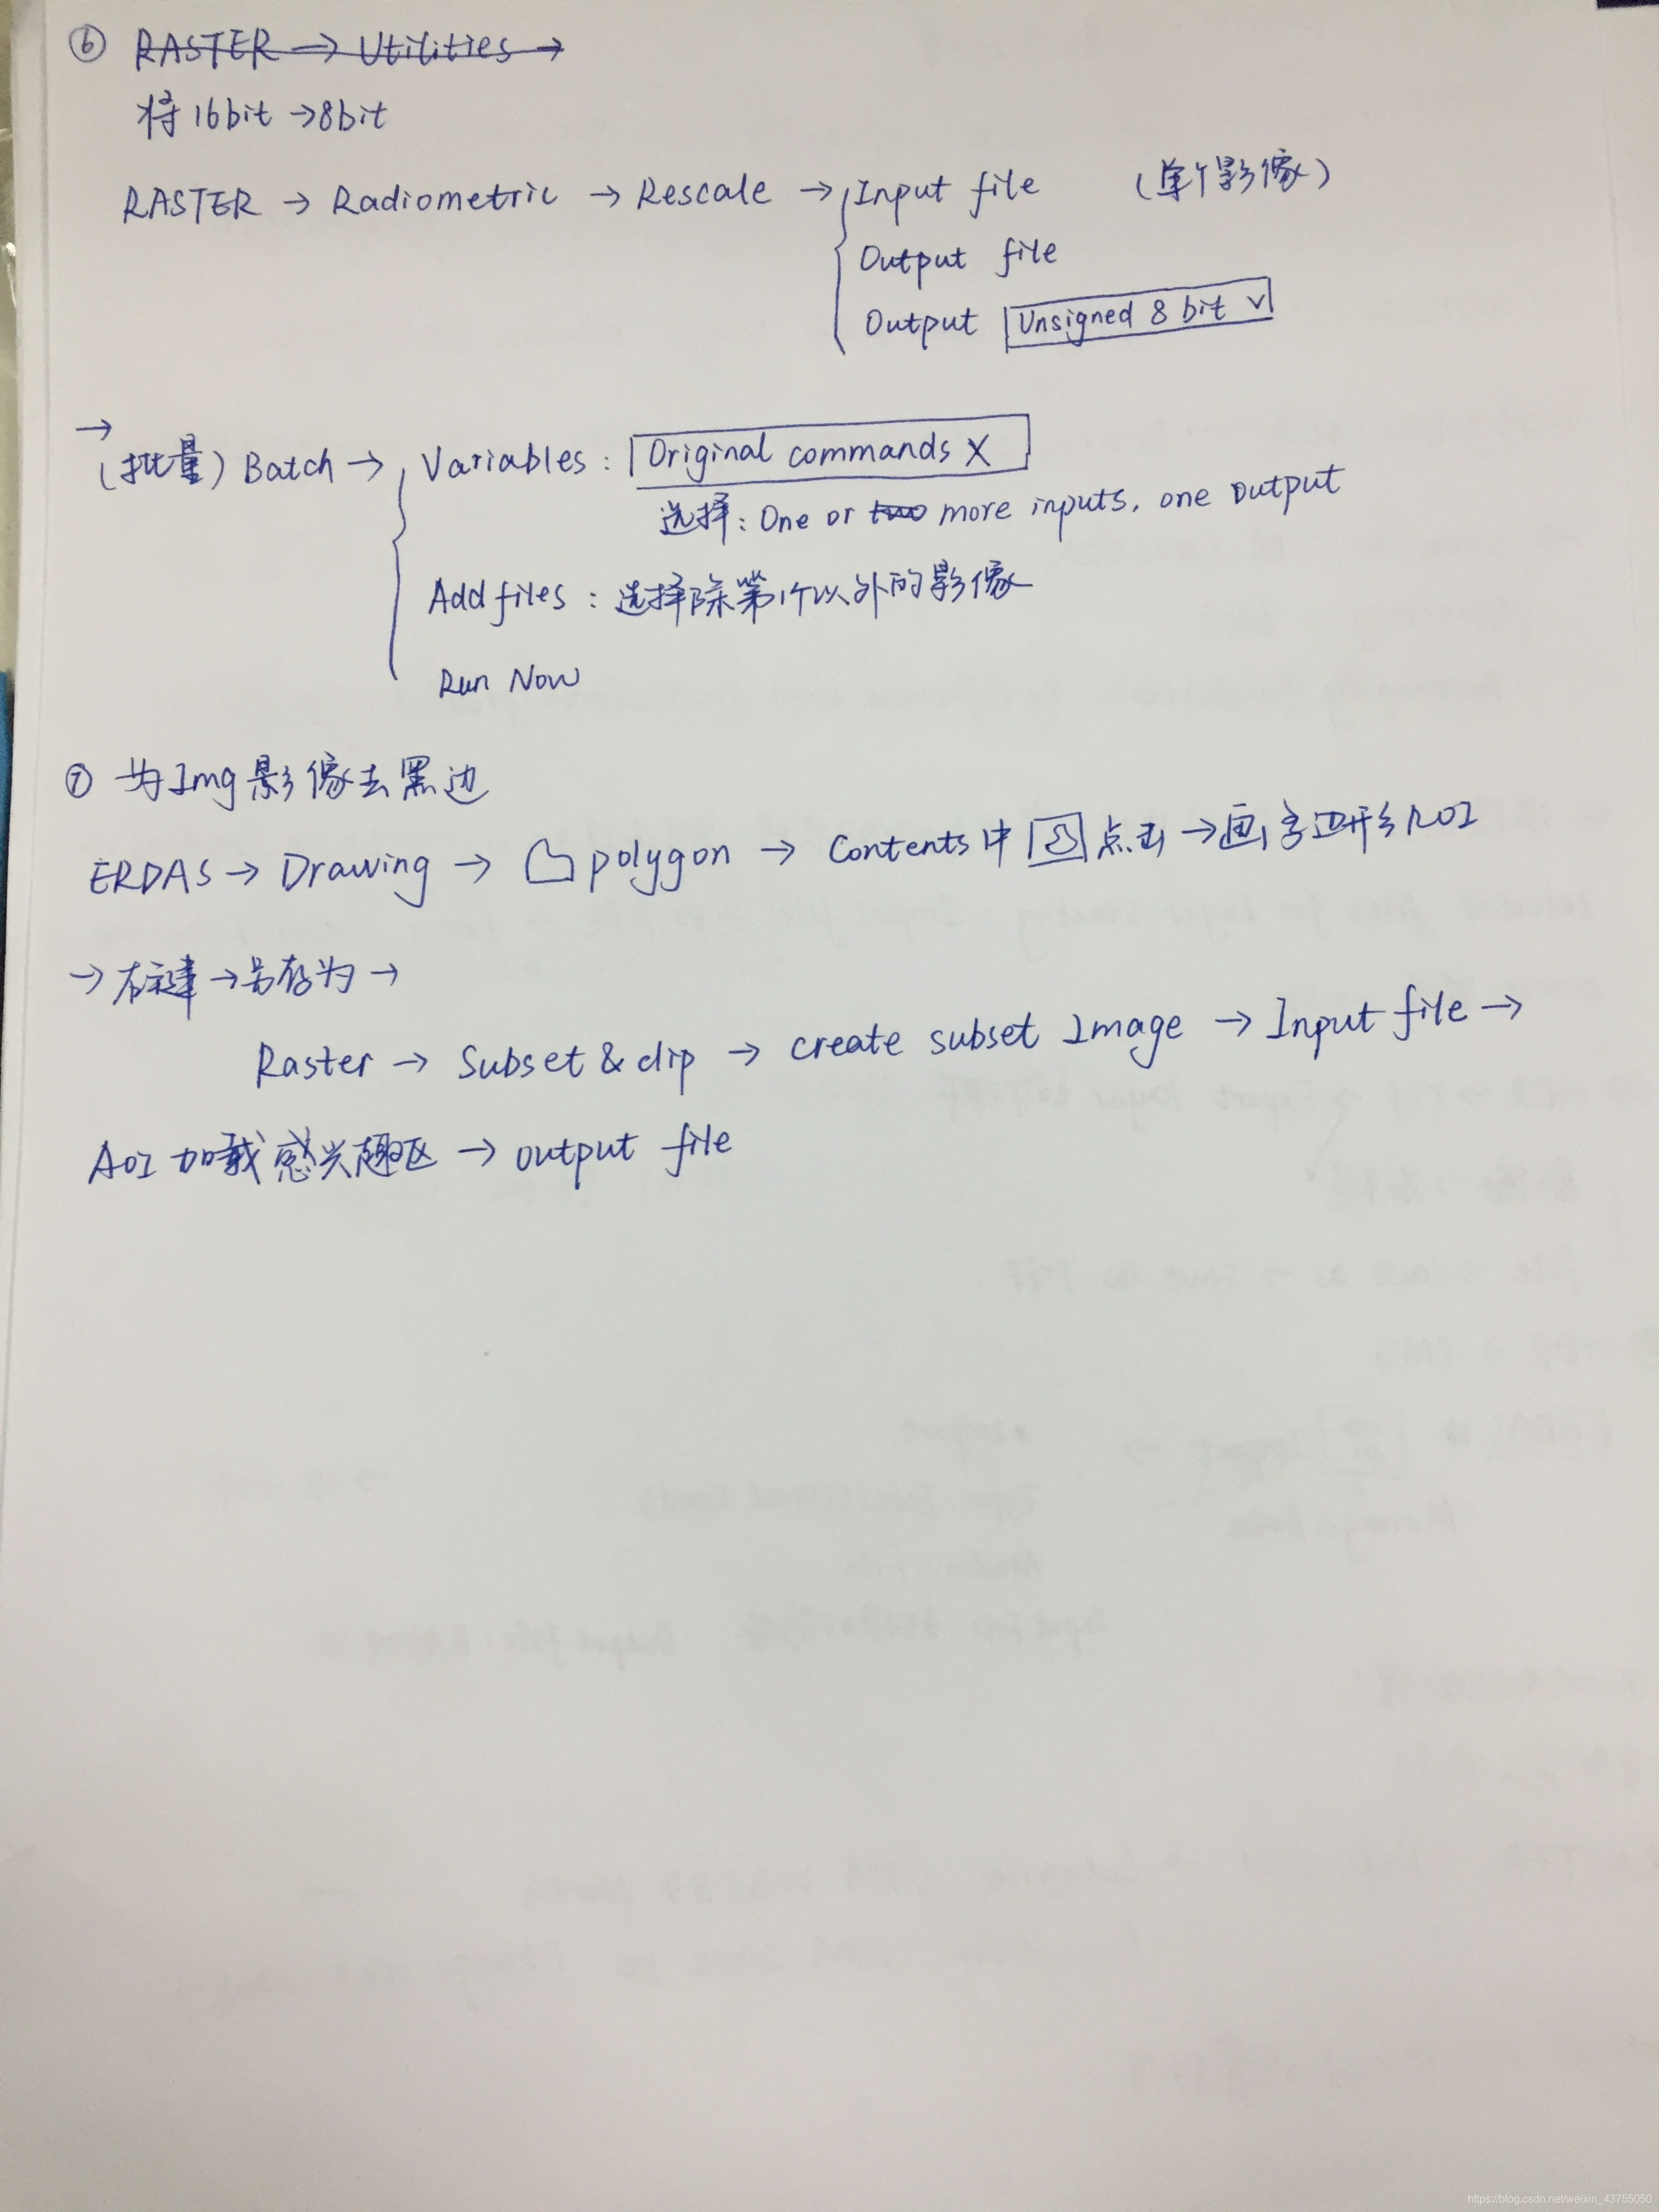 ⑥ RASTER → Utilities →
将16bit →8bit
RASTER → Radiometric → Rescale → Input file （单个影像）
Output file
Output Unsigned 8 bit ∨
→
（批量）Batch → Variables : Original commands X
选择: One or two more inputs, one output
Add files : 选择除第1个以外的影像
Run Now
⑦ 为Img影像去黑边
ERDAS → Drawing → polygon → Contents中 点击 → 画多边形ROI
→ 右键 → 另存为 →
Raster → Subset & clip → create subset Image → Input file →
AOI 加载感兴趣区 → output file
https://blog.csdn.net/weixin_43755050